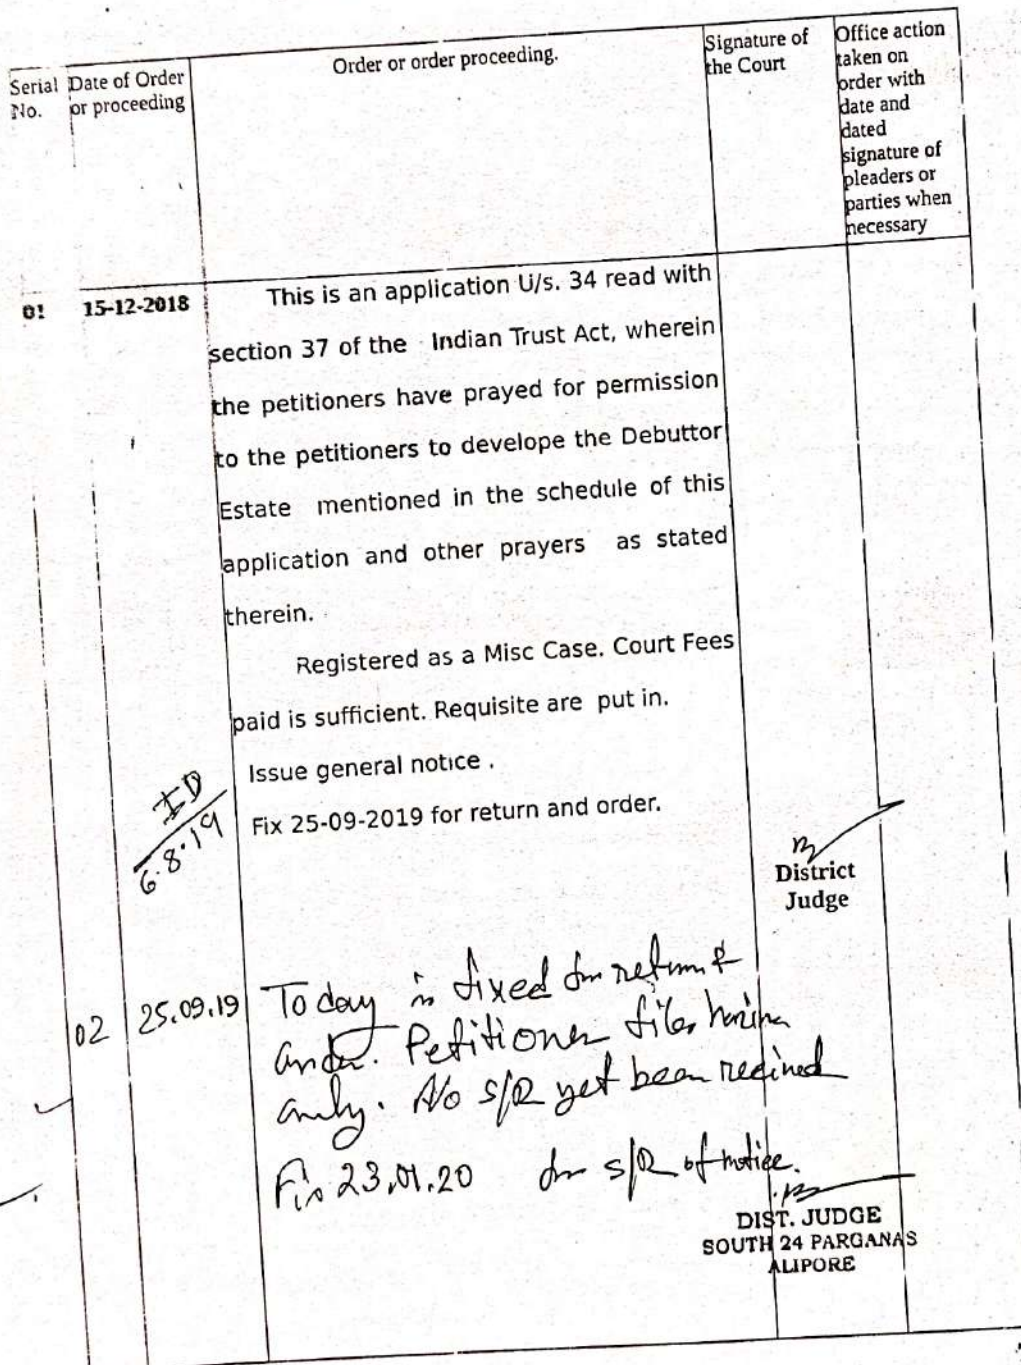 Serial No.
Date of Order or proceeding
Order or order proceeding.
Signature of the Court
Office action taken on order with date and dated signature of pleaders or parties when necessary
01 15-12-2018 This is an application U/s. 34 read with
section 37 of the Indian Trust Act, wherein
the petitioners have prayed for permission
to the petitioners to develope the Debuttor
Estate mentioned in the schedule of this
application and other prayers as stated
therein.
Registered as a Misc Case. Court Fees
paid is sufficient. Requisite are put in.
Issue general notice .
Fix 25-09-2019 for return and order.
6.8.19
District
Judge
02 25.09.19 Today is fixed for return &
order. Petitioner files hazira
only. No S/R yet been received
Fix 23.01.20 for S/R of notice.
DIST. JUDGE
SOUTH 24 PARGANAS
ALIPORE